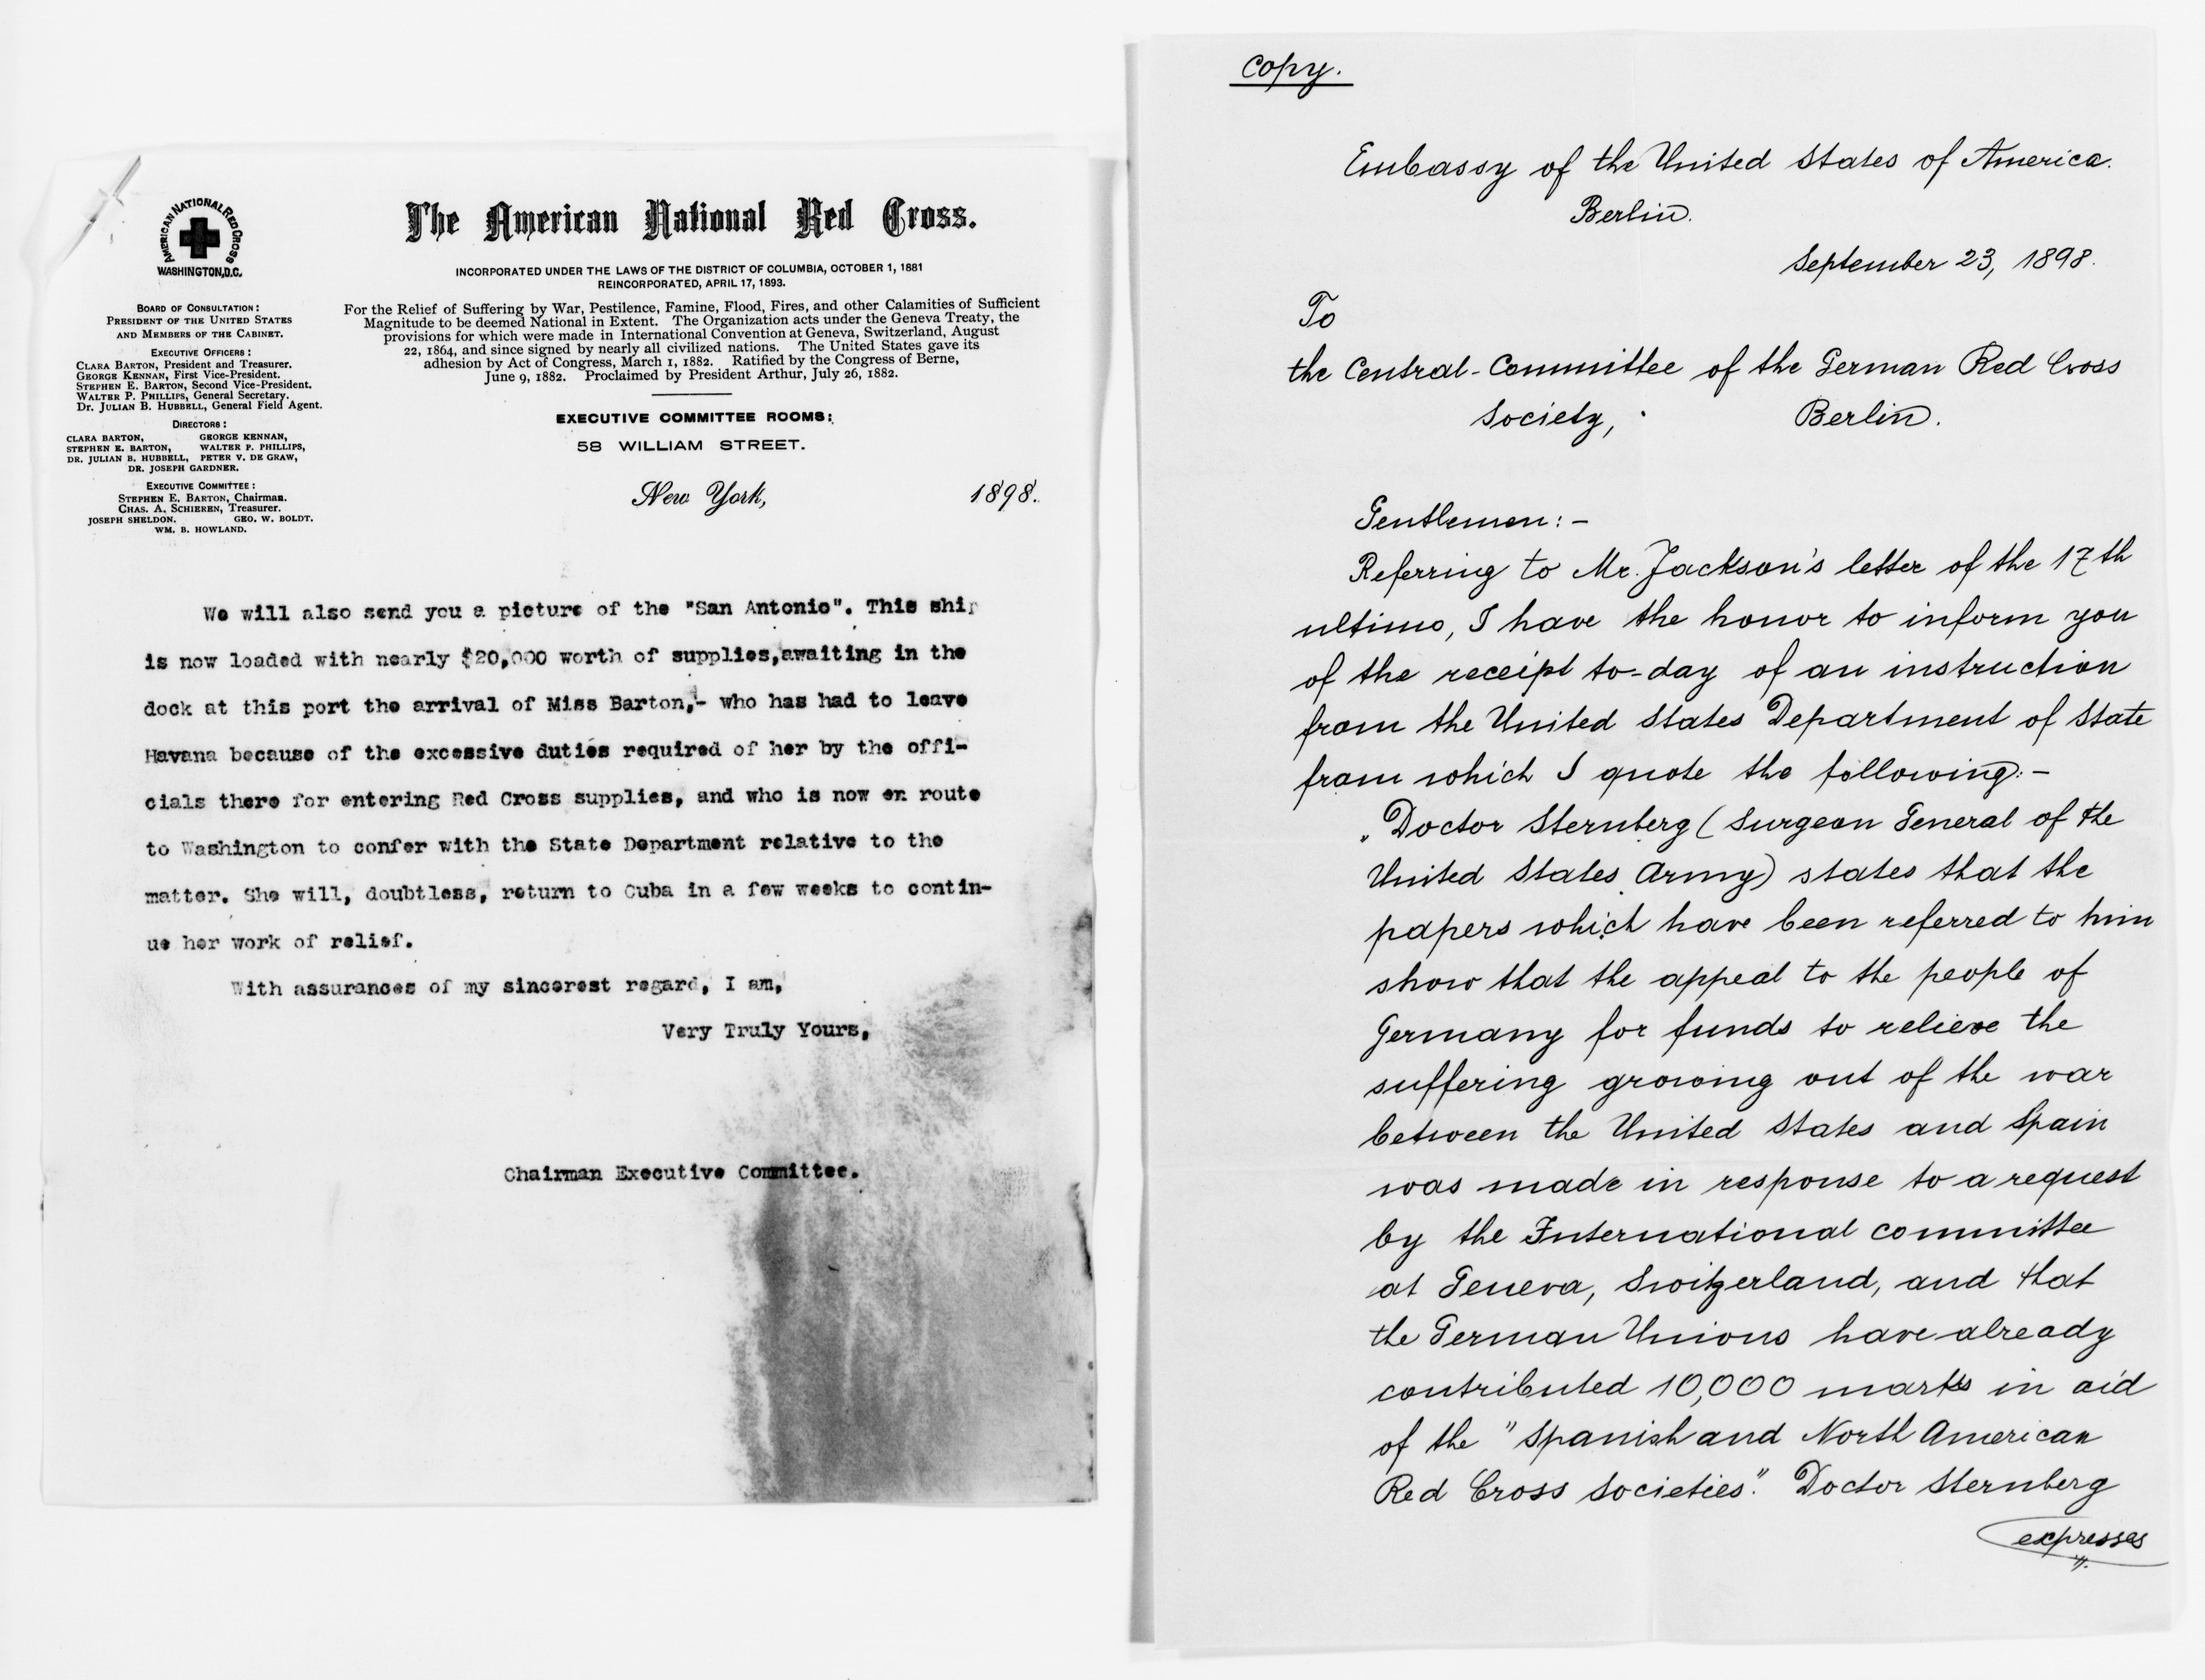 AMERICAN NATIONAL RED CROSS
WASHINGTON, D.C.
BOARD OF CONSULTATION:
PRESIDENT OF THE UNITED STATES
AND MEMBERS OF THE CABINET.
EXECUTIVE OFFICERS:
CLARA BARTON, President and Treasurer.
GEORGE KENNAN, First Vice-President.
STEPHEN E. BARTON, Second Vice-President.
WALTER P. PHILLIPS, General Secretary.
Dr. JULIAN B. HUBBELL, General Field Agent.
DIRECTORS:
CLARA BARTON, GEORGE KENNAN,
STEPHEN E. BARTON, WALTER P. PHILLIPS,
DR. JULIAN B. HUBBELL, PETER V. DE GRAW,
DR. JOSEPH GARDNER.
EXECUTIVE COMMITTEE:
STEPHEN E. BARTON, Chairman.
CHAS. A. SCHIEREN, Treasurer.
JOSEPH SHELDON. GEO. W. BOLDT.
WM. B. HOWLAND.
The American National Red Cross.
INCORPORATED UNDER THE LAWS OF THE DISTRICT OF COLUMBIA, OCTOBER 1, 1881
REINCORPORATED, APRIL 17, 1893.
For the Relief of Suffering by War, Pestilence, Famine, Flood, Fires, and other Calamities of Sufficient
Magnitude to be deemed National in Extent. The Organization acts under the Geneva Treaty, the
provisions for which were made in International Convention at Geneva, Switzerland, August
22, 1864, and since signed by nearly all civilized nations. The United States gave its
adhesion by Act of Congress, March 1, 1882. Ratified by the Congress of Berne,
June 9, 1882. Proclaimed by President Arthur, July 26, 1882.
EXECUTIVE COMMITTEE ROOMS:
58 WILLIAM STREET.
New York, 1898.
We will also send you a picture of the "San Antonio". This ship
is now loaded with nearly $20,000 worth of supplies,awaiting in the
dock at this port the arrival of Miss Barton,- who has had to leave
Havana because of the excessive duties required of her by the offi-
cials there for entering Red Cross supplies, and who is now en route
to Washington to confer with the State Department relative to the
matter. She will, doubtless, return to Cuba in a few weeks to contin-
ue her work of relief.
With assurances of my sincerest regard, I am,
Very Truly Yours,
Chairman Executive Committee.
Copy.
Embassy of the United States of America.
Berlin.
September 23, 1898.
To
the Central-Committee of the German Red Cross
Society, Berlin.
Gentlemen:-
Referring to Mr. Jackson's letter of the 17th
ultimo, I have the honor to inform you
of the receipt to-day of an instruction
from the United States Department of State
from which I quote the following:-
"Doctor Sternberg (Surgeon General of the
United States Army) states that the
papers which have been referred to him
show that the appeal to the people of
Germany for funds to relieve the
suffering growing out of the war
between the United States and Spain
was made in response to a request
by the International committee
at Geneva, Switzerland, and that
the German Unions have already
contributed 10,000 marks in aid
of the "Spanish and North American
Red Cross Societies." Doctor Sternberg
expresses